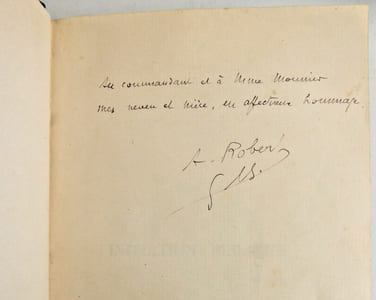 Au commandant et à Mme Mounier
mes neveu et nièce, en affectueux hommage.
A. Robert